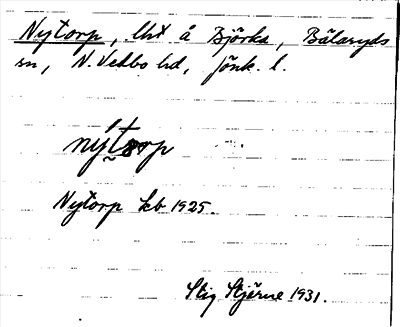 Nytorp, lht å Björka, Bälaryds
sn, N. Vedbo hd, Jönk. l.
nýtorp
Nytorp kb 1925.
Stig Stjärne 1931.